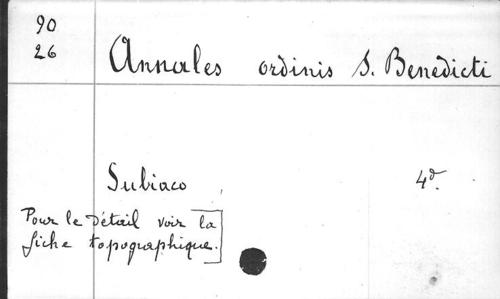 90
26
Annales ordinis S. Benedicti
Subiaco 4º.
Pour le détail voir la
fiche topographique.